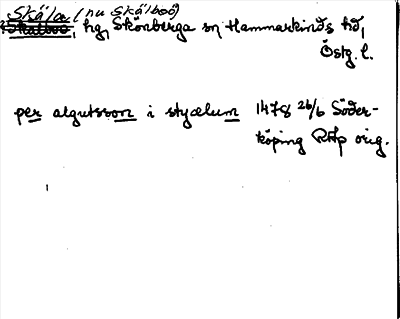 Skälac (nu Skälboö)
Skälboö, hg, Skönberga sn Hammarkinds hd,
Östg. l.
per algutsson i styælum 1478 26/6 Söder-
köping RAp orig.